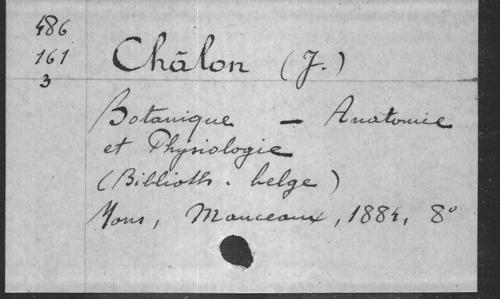 486
161
3
Châlon (J.)
Botanique — Anatomie
et Physiologie
(Biblioth. belge)
Mons, Manceaux, 1884, 8°